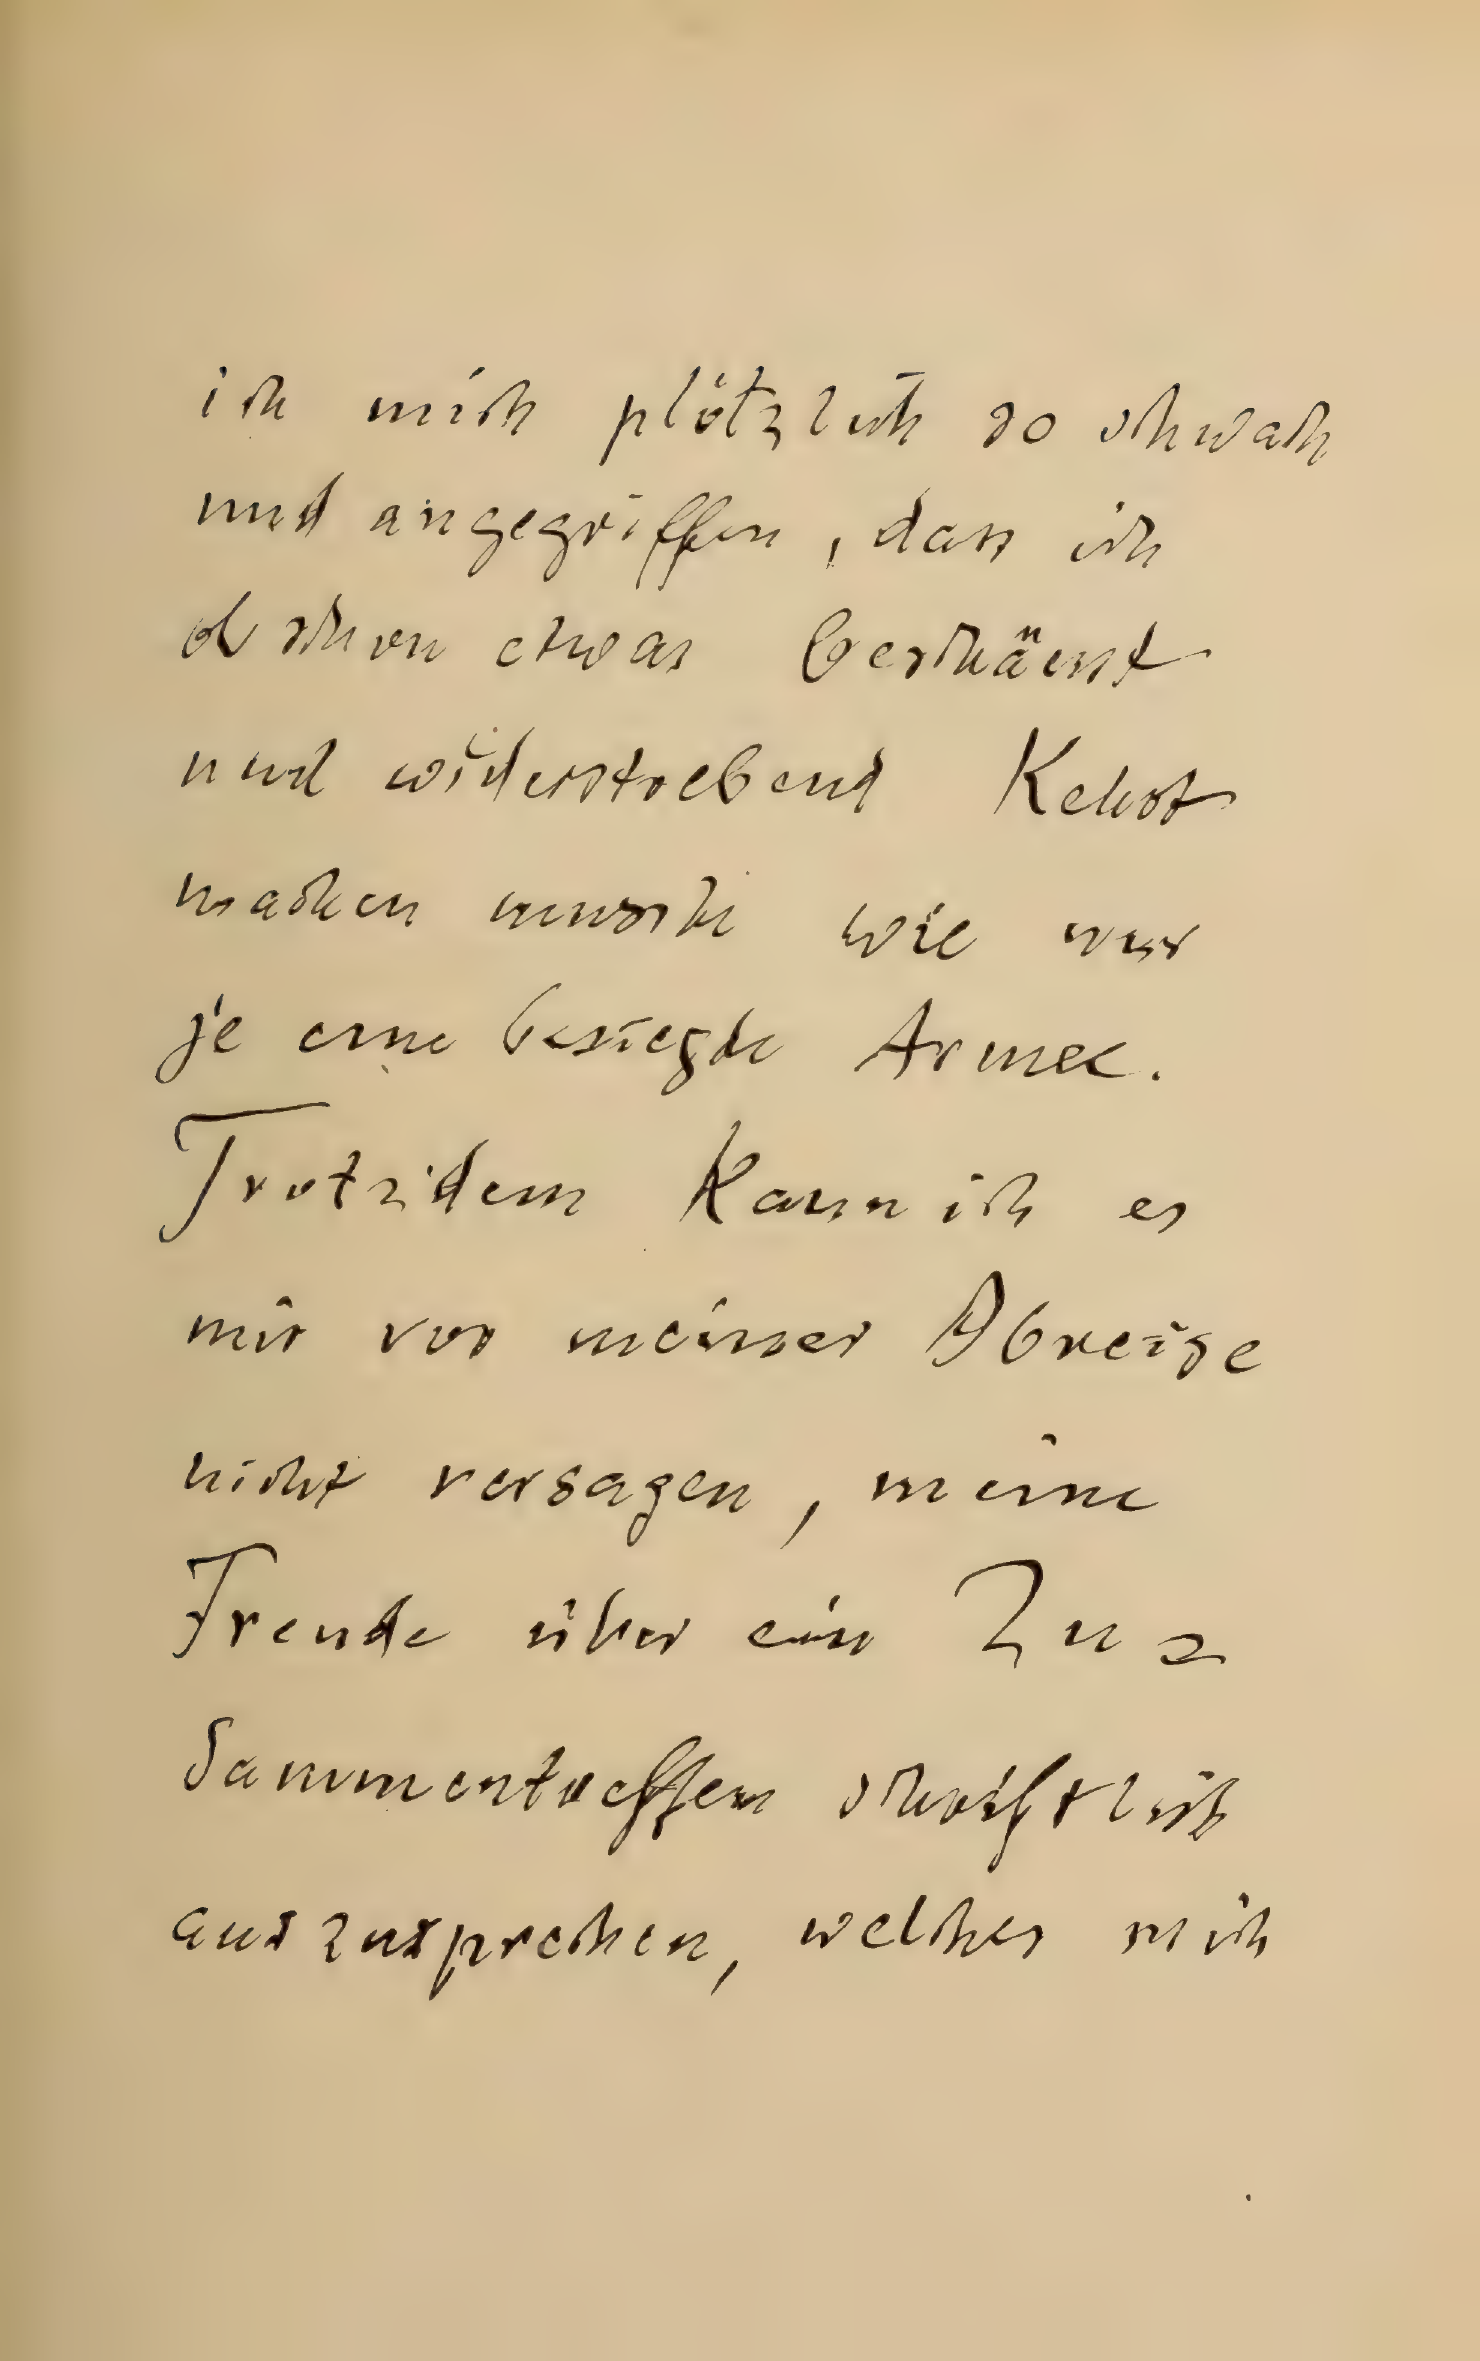 ich mich plötzlich so schwach
und angegriffen, dass ich
obschon etwas beschämt
und widerstrebend Kehrt
machen musste wie nur
je eine besiegte Armee.
Trotzdem kann ich es
mir vor meiner Abreise
nicht versagen, meine
Freude über ein Zu=
sammentreffen schriftlich
auszusprechen, welches mich